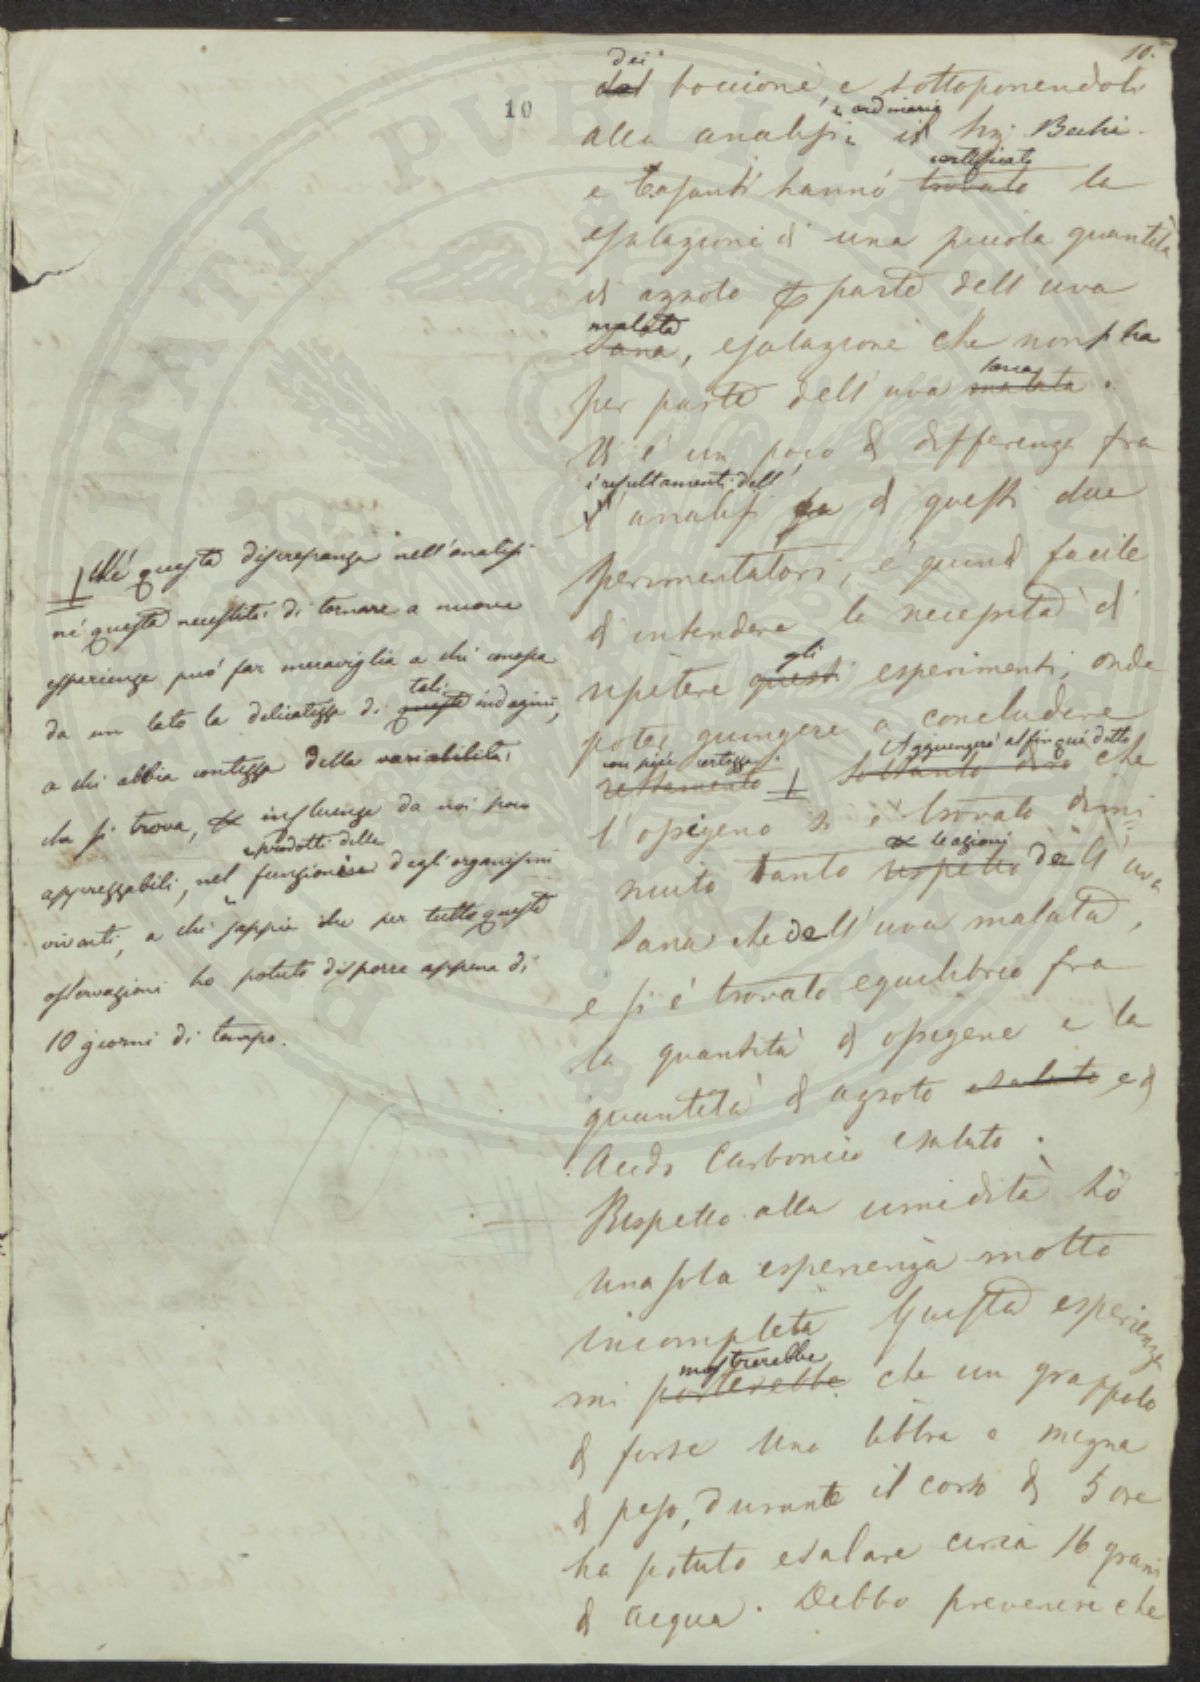 10.
10
dei
del boccione, e sottoponendoli
e ordinaria
alla analisi il Sig. Bechi
certificato
e Tassanti hanno trovato la
esalazione di una piccola quantità
di azzoto per parte dell'uva
malata
sana, esalazione che non si ha
sana
per parte dell'uva malata.
Vi è un poco di differenza fra
i resultamenti dell'
l'analisi di questi due
sperimentatori, è quindi facile
d'intendere la necessità di
gli
ripetere questi esperimenti, onde
poter giungere a concludere
con più certezza. Aggiungerò al fin qui detto
rettamente Soltanto dirò che
l'ossigeno si è trovato dimi
le azioni
nuito tanto rispetto dell'uva
Sana che dell'uva malata,
e si è trovato equilibrio fra
la quantità di ossigene e la
quantità di azzoto esalato, e di
Acido Carbonico esalato.
Rispetto alla umidità hò
una sola esperienza molto
incompleta Questa esperienza
mostrerebbe
mi porterebbe che un grappolo
di forse una libbra e mezza
di peso, durante il corso di 5 ore
ha potuto esalare circa 16 grani
di acqua. Debbo prevenire che
Nè questa discrepanza nell'analisi
nè questa necessità di tornare a nuove
esperienze può far meraviglia a chi conosca
tali
da un lato la delicatezza di queste indagini,
a chi abbia contezza della variabilità,
che si trova, influenze da noi poco
prodotti delle
apprezzabili, nel funzioni degli organismi
viventi, a chi sappia che per tutte queste
osservazioni ho potuto disporre appena di
10 giorni di tempo.